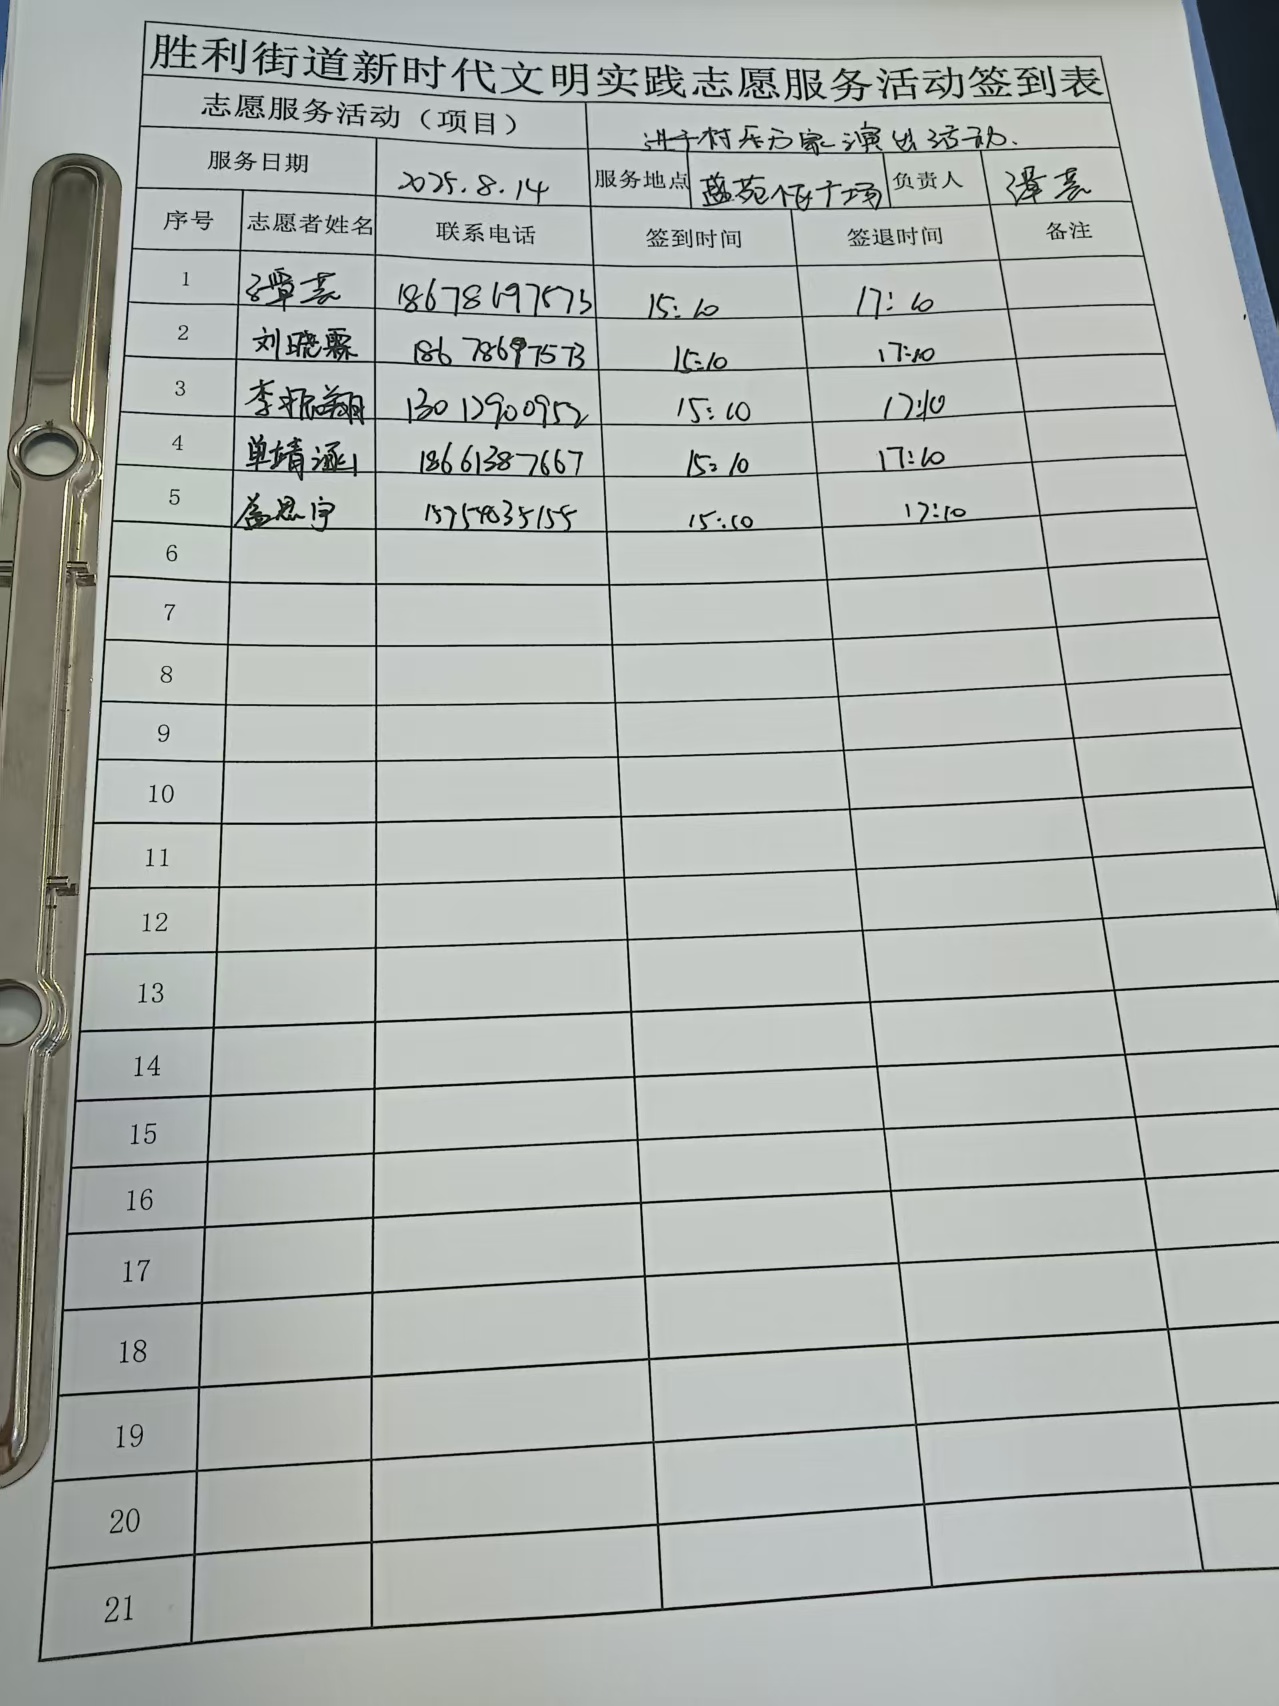 胜利街道新时代文明实践志愿服务活动签到表
志愿服务活动（项目） 进千村乐万家演出活动.
服务日期 2025.8.14 服务地点 广场 负责人 谭芸
序号 志愿者姓名 联系电话 签到时间 签退时间 备注
1 谭芸 18678697573 15:10 17:10
2 刘晓霖 18678697573 15:10 17:10
3 李振翔 13012900952 15:10 17:10
4 单靖涵 18661387667 15:10 17:10
5 孟思宇 15:10 17:10
6
7
8
9
10
11
12
13
14
15
16
17
18
19
20
21